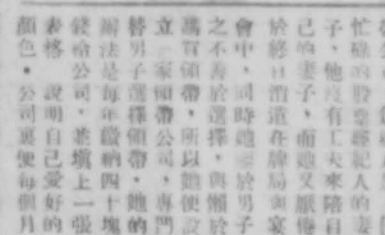 忙碌的股票經紀人的妻
子、他沒有工夫來陪自
己的妻子，而她又厭倦
於終日消遣在牌局與宴
會中，同時她鑒於男子
之不善於選擇，與懶於
購買領帶，所以她便設
立一家領帶公司，專門
替男子選擇領帶。她的
辦法是每年繳納四十塊
錢給公司，並填上一張
表格，說明自己愛好的
顏色。公司裏便每個月